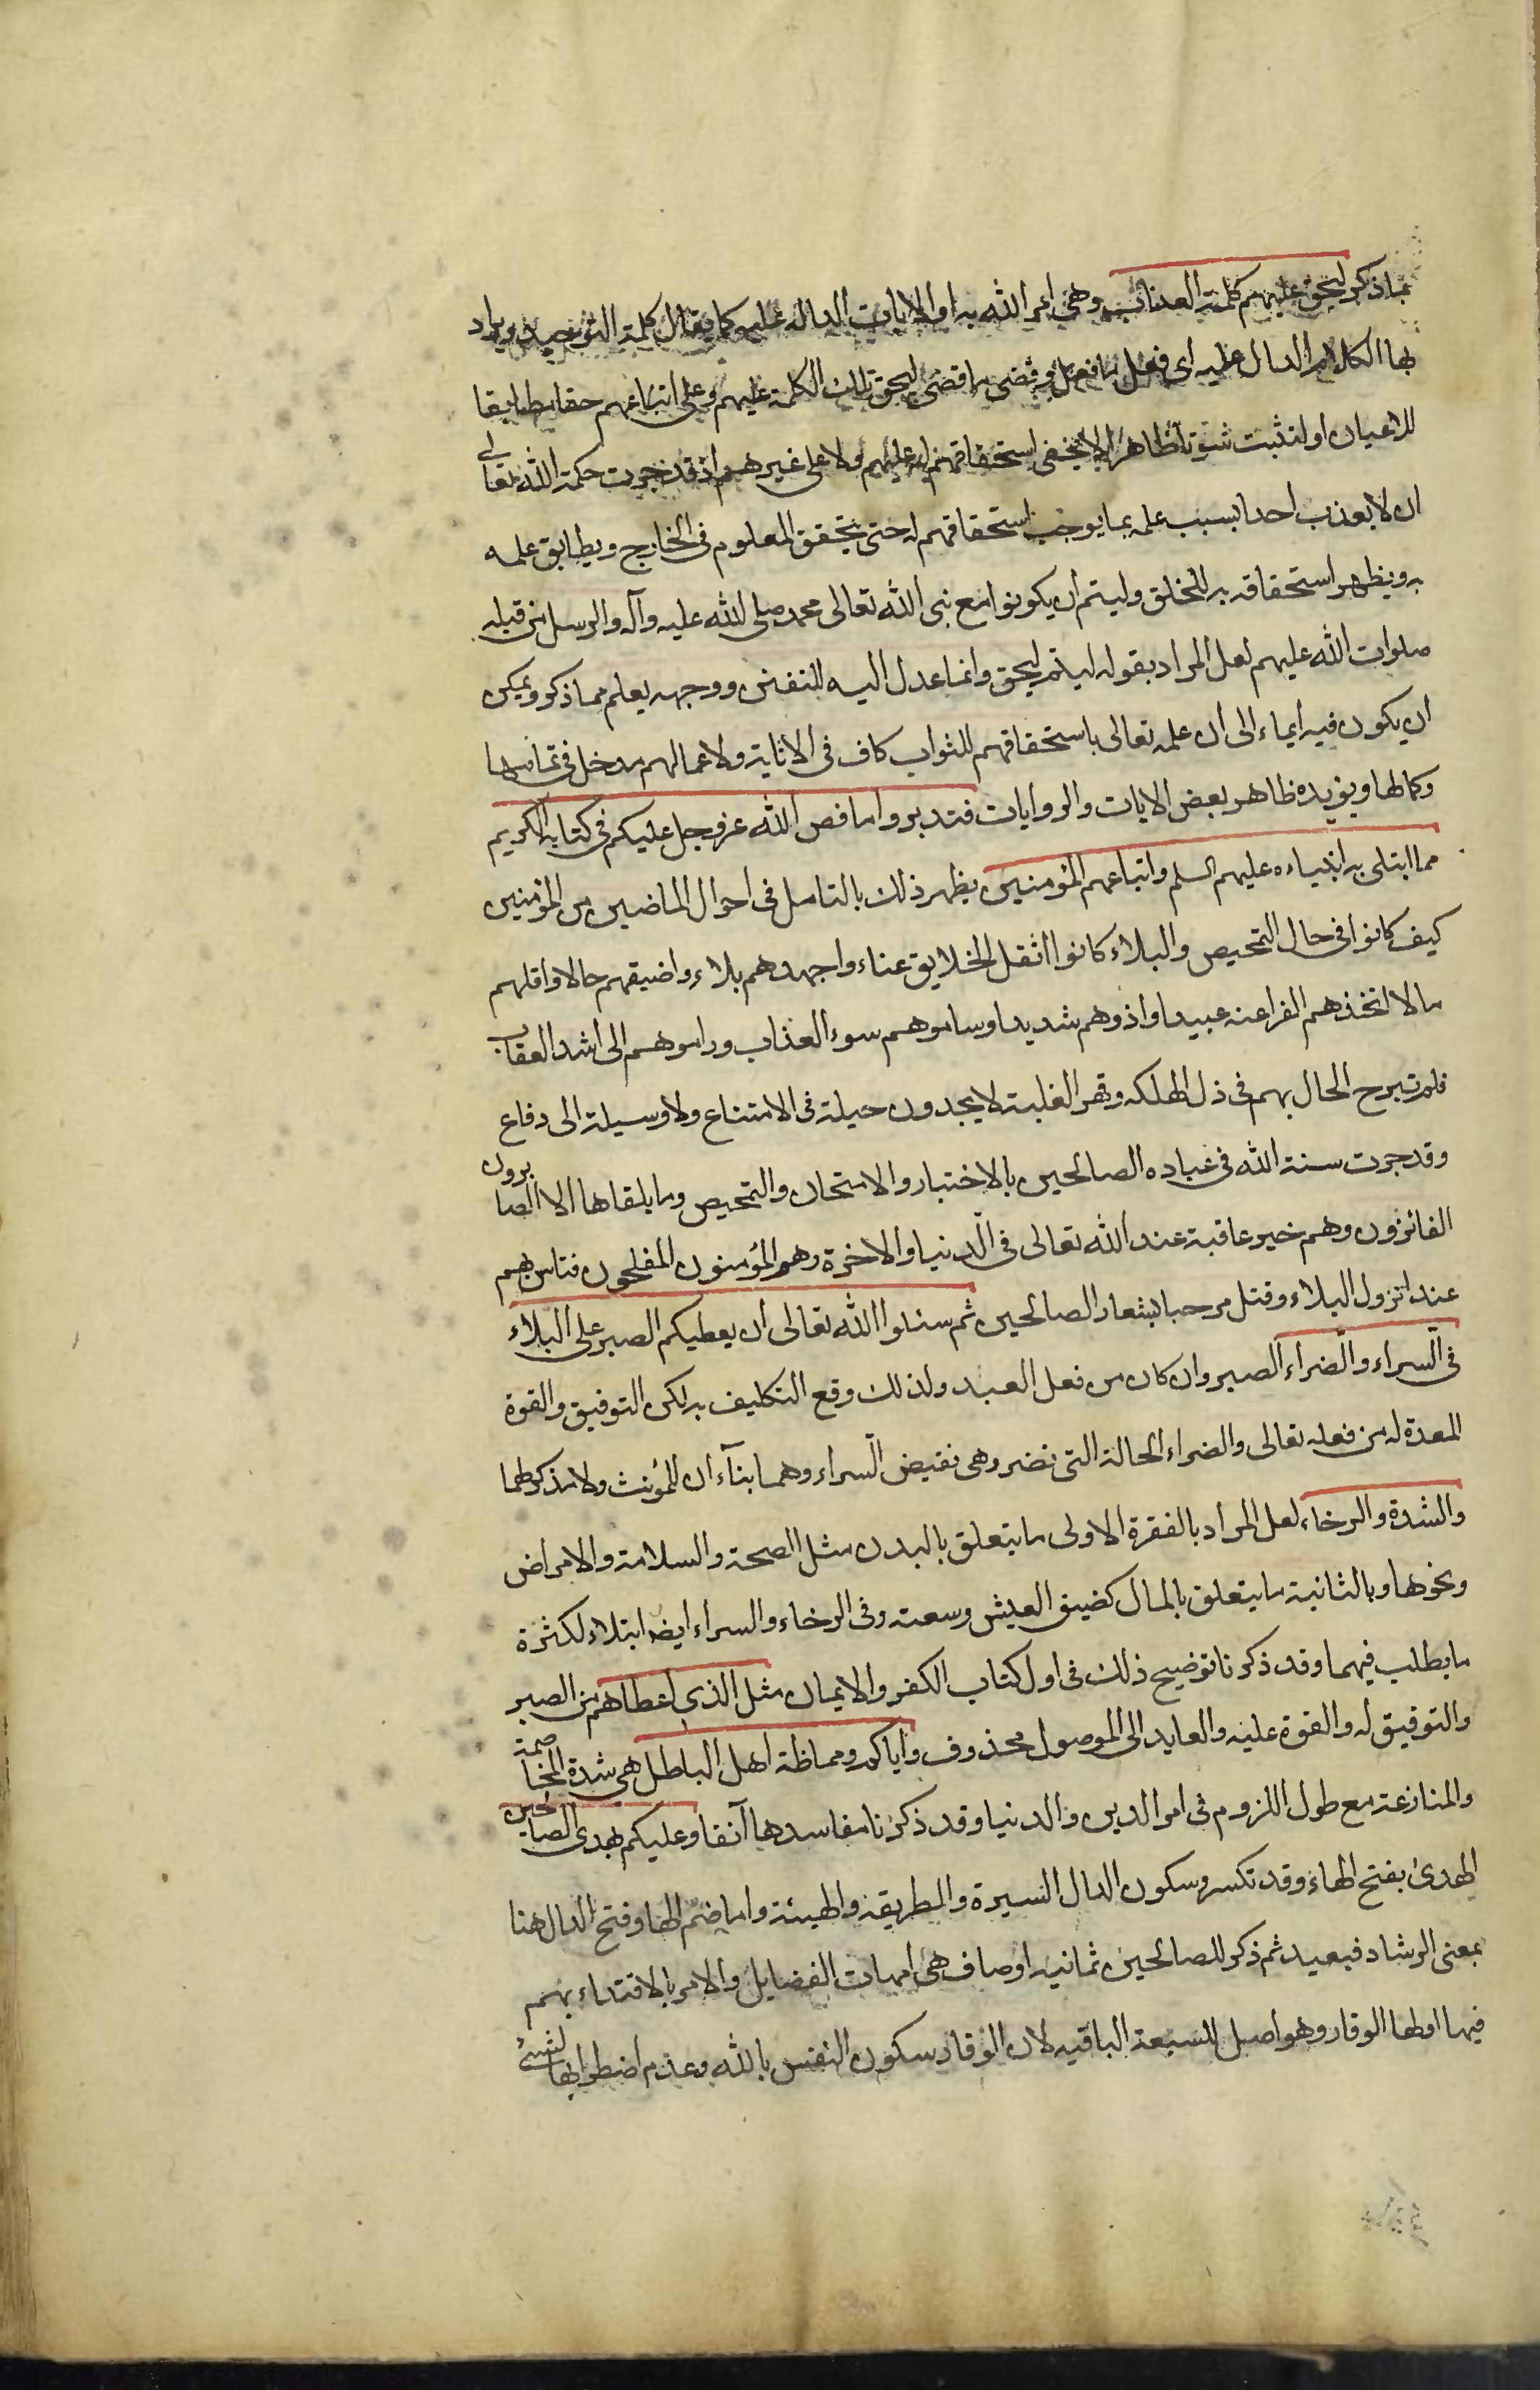 بما ذكر ليحق عليهم كلمة العذاب وهي امر الله به او الايات الدالة عليه كما يقال كلمة التوحيد ويراد
بها الكلام الدال عليه اى فعل ما فعل وقضى ما قضى ليحق تلك الكلمة عليهم وعلى اتباعهم حقا مطابقا
للاعيان او لتثبت ثبوتا ظاهرا لا يخفى استحقاقهم له عليهم ولا على غيرهم اذ قد جرت حكمة الله تعالى
ان لا يعذب احدا بسبب علمه بما يوجب استحقاقهم له حتى يتحقق المعلوم فى الخارج ويطابق علمه
به ويظهر استحقاقه به للخلق وليتم ان يكونوا مع نبى الله تعالى محمد صلى الله عليه وآله والرسل من قبله
صلوات الله عليهم لعل المراد بقوله ليتم ليحق وانما عدل اليه للتفنن ووجهه يعلم مما ذكر ويمكن
ان يكون فيه ايماء الى ان علمه تعالى باستحقاقهم للثواب كاف فى الاثابة ولاعمالهم مدخل فى تمامها
وكمالها ويؤيده ظاهر بعض الايات والروايات فتدبروا ما قص الله عز وجل عليكم فى كتابه الكريم
مما ابتلى به انبياءه عليهم السلم واتباعهم المؤمنين يظهر ذلك بالتامل فى احوال الماضين من المؤمنين
كيف كانوا فى حال التمحيص والبلاء كانوا اثقل الخلايق عناء واجهدهم بلاء واضيقهم حالا واقلهم
مالا اتخذهم الفراعنه عبيدا واذوهم شديدا وساموهم سوء العذاب وراموهم الى اشد العقاب
فلم تبرح الحال بهم فى ذل الهلكه وقهر الغلبة لا يجدون حيلة فى الامتناع ولا وسيلة الى دفاع
وقد جرت سنة الله فى عباده الصالحين بالاختبار والامتحان والتمحيص وما يلقاها الا الصابرون
الفائزون وهم خير عاقبة عند الله تعالى فى الدنيا والاخرة وهم المؤمنون المفلحون فتاس بهم
عند نزول البلاء وقتل مرحبا بشعار الصالحين ثم سئلوا الله تعالى ان يعطيكم الصبر على البلاء
فى السراء والضراء الصبر وان كان من فعل العبد ولذلك وقع التكليف به لكن التوفيق والقوة
المعدة له من فعله تعالى والضراء الحالة التى تضر وهى نقيض السراء وهما بنآء ان للمؤنث ولا مذكر لهما
والشدة والرخاء لعل المراد بالفقرة الاولى ما يتعلق بالبدن مثل الصحة والسلامة والامراض
ونحوها وبالثانية ما يتعلق بالمال كضيق العيش وسعته وفى الرخاء والسراء ايض ابتلاء لكثرة
ما يطلب فيهما وقد ذكرنا توضيح ذلك فى اول كتاب الكفر والايمان مثل الذي اعطاهم من الصبر
والتوفيق له والقوة عليه والعايد الى الموصول محذوف واياكم ومماظة اهل الباطل هى شدة المخاصمة
والمنازعة مع طول اللزوم فى امر الدين والدنيا وقد ذكرنا مفاسدها آنفا وعليكم بهدى الصالحين
الهدى بفتح الهاء وقد تكسر وسكون الدال السيرة والطريقة والهيئة واما ضم الها وفتح الدال هنا
بمعنى الرشاد فبعيد ثم ذكر للصالحين ثمانية اوصاف هى امهات الفضايل والامر بالاقتداء بهم
فيها اولها الوقار وهو اصل للسبعة الباقيه لان الوقار سكون النفس بالله وعدم اضطرابها لشئ